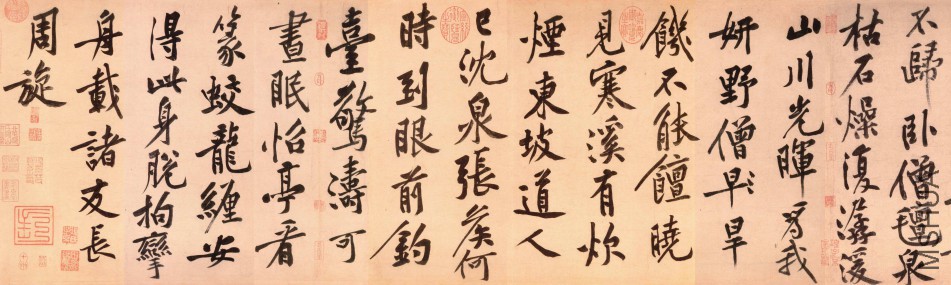 不歸臥僧氈泉
枯石燥復潺湲
山川光暉為我
妍野僧早旱
饑不能饘曉
見寒溪有炊
煙東坡道人
已沈泉張侯何
時到眼前釣
臺驚濤可
晝眠怡亭看
篆蛟龍纏安
得此身脫拘攣
舟載諸友長
周旋